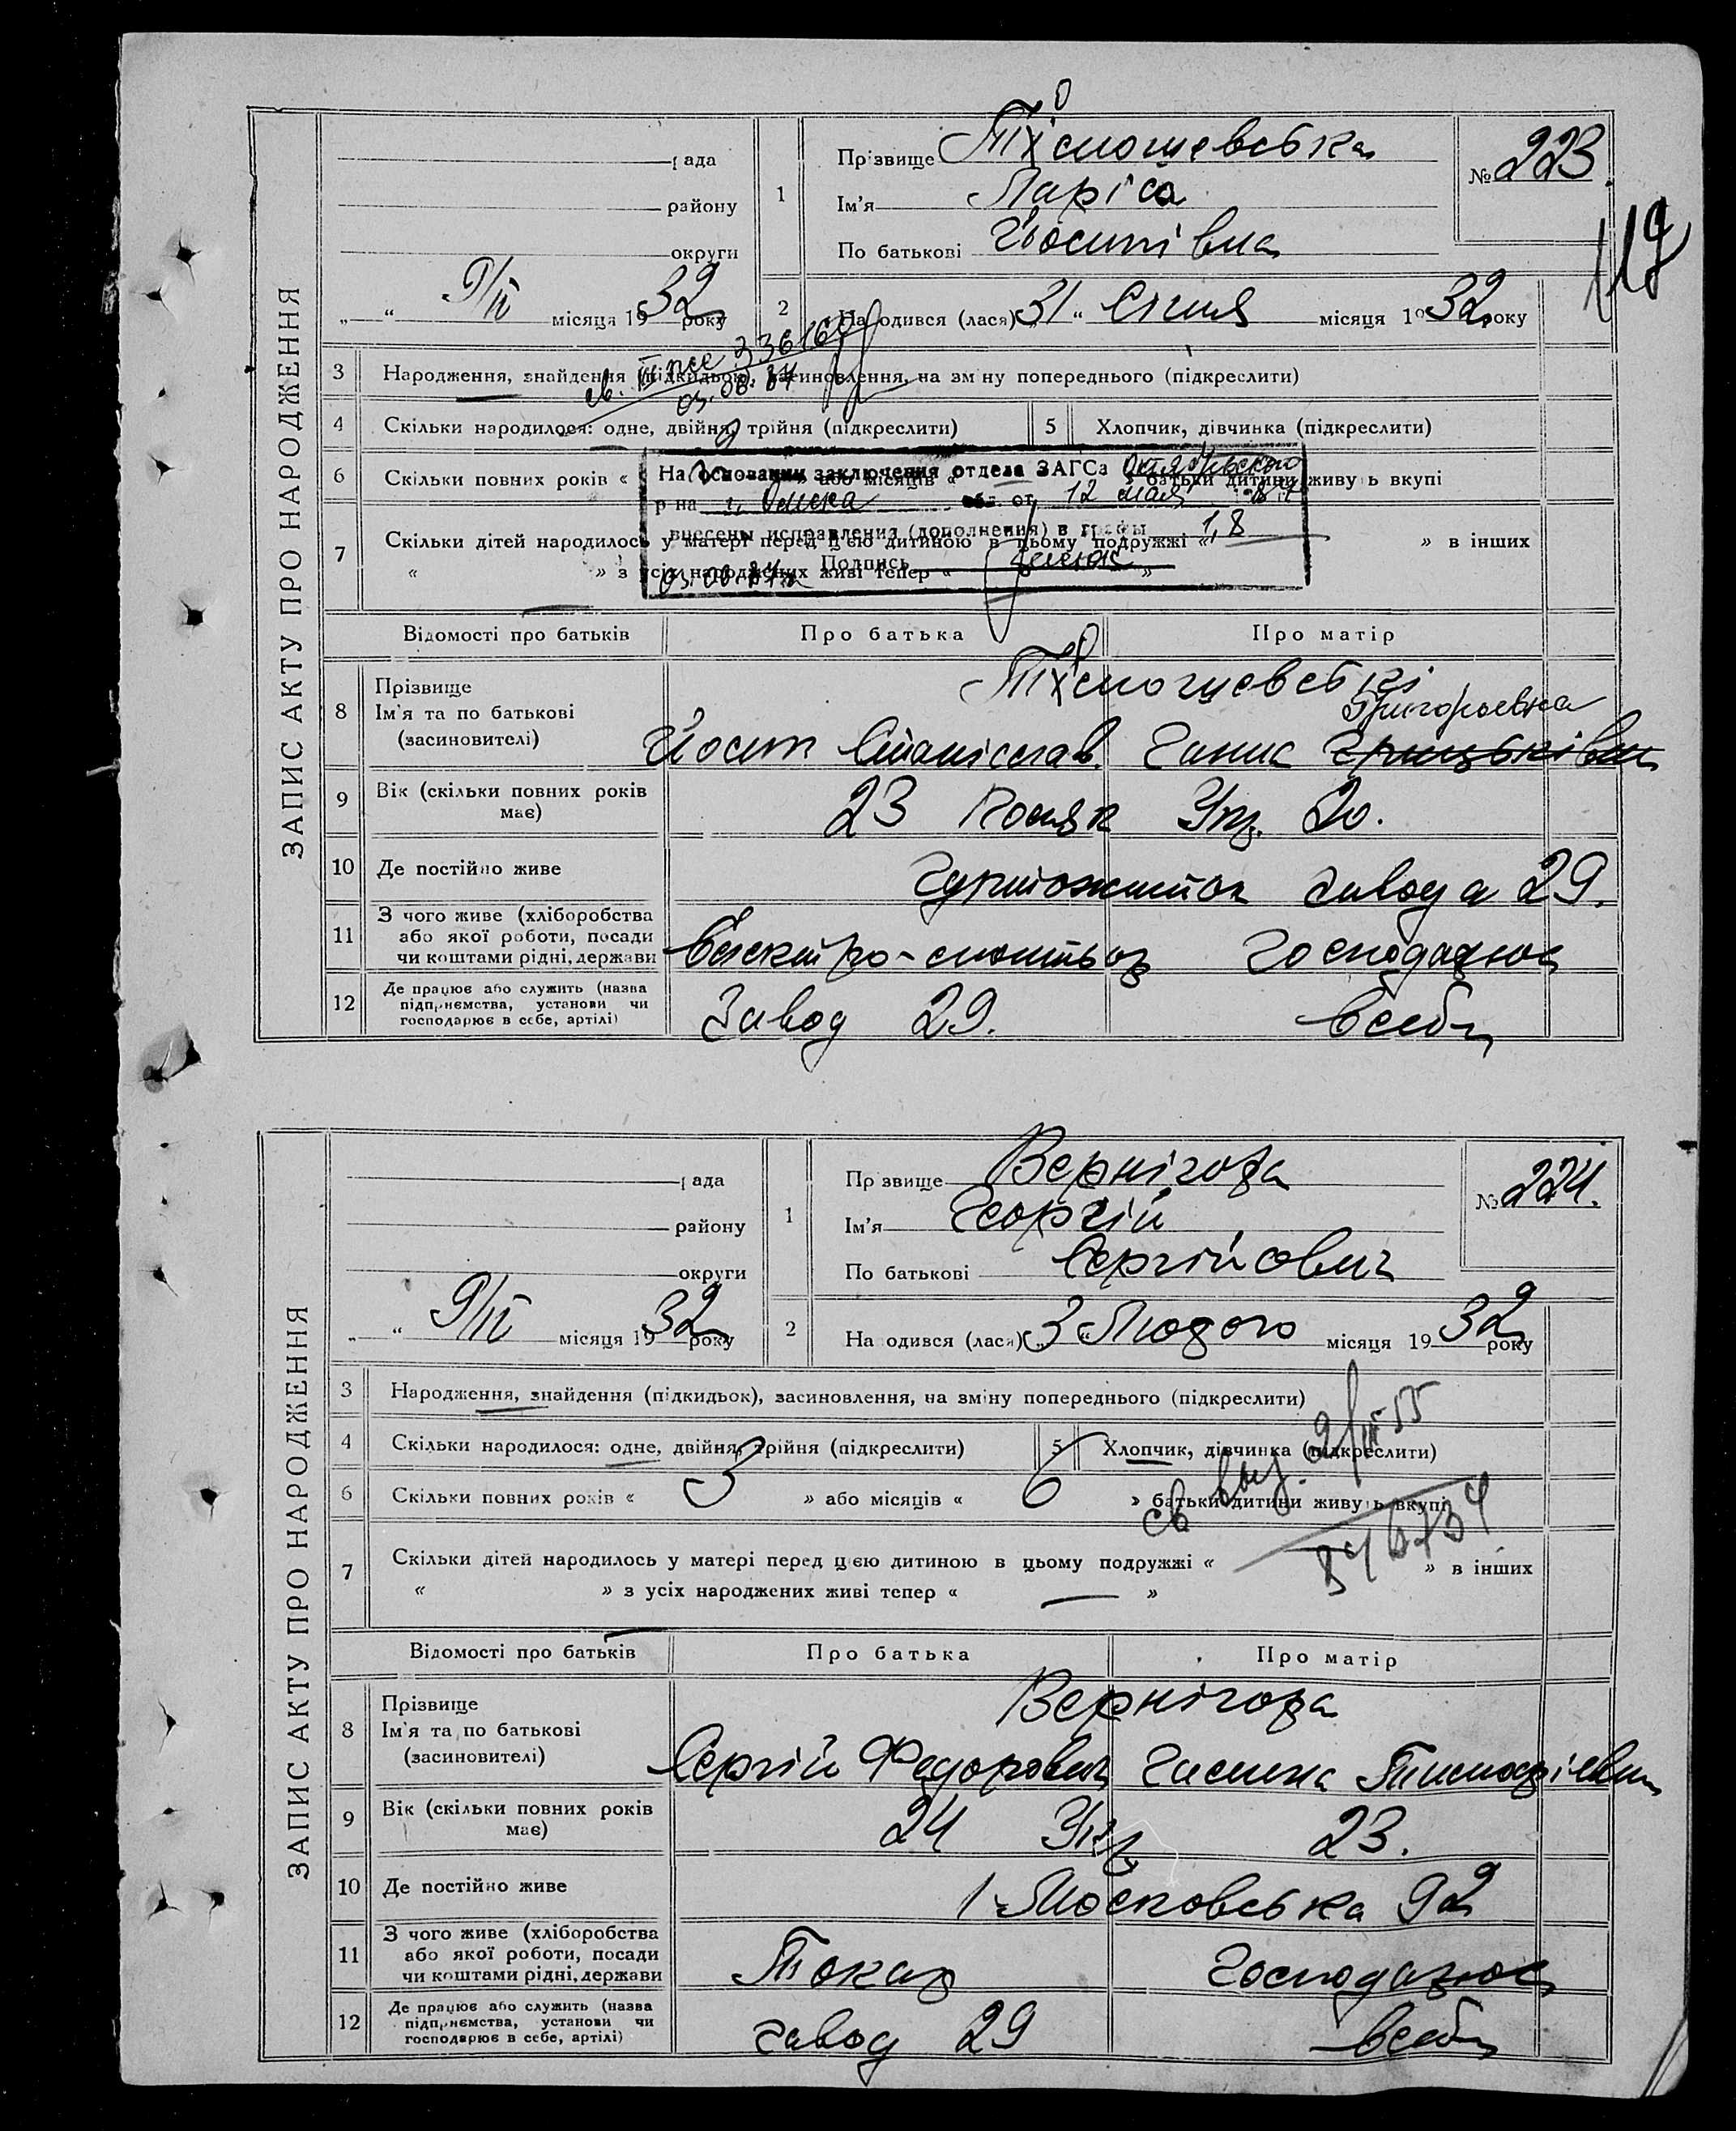 ЗАПИС АКТУ ПРО НАРОДЖЕННЯ
рада
району
округи
9/II місяця 1932 року
1
Прізвище
Ім'я Ларіса
По батькові Йосипівна
№ 223
119
2 Народився (лася) 31 Січня місяця 1932 року
3 Народження, знайдення (підкидьок), засиновлення, на зміну попереднього (підкреслити)
св. III
03.08.84
4 Скільки народилося: одне, двійня, трійня (підкреслити)
5 Хлопчик, дівчинка (підкреслити)
6 Скільки повних років « » або місяців « » батьки дитини живуть вкупі
На основании заключения отдела ЗАГСа Октябрьского
р на г. Омска обл. от 12 мая
внесены исправления (дополнения) в графы 1,8
Подпись
03.08.84
7 Скільки дітей народилось у матері перед цією дитиною в цьому подружжі « » в інших
« » з усіх народжених живі тепер « »
Відомості про батьків Про батька Про матір
8 Прізвище
Ім'я та по батькові
(засиновителі)
Григорьевна
Йосип Станіслав. Ганна Грицьківна
9 Вік (скільки повних років має) 23 Поляк Укр. 20.
10 Де постійно живе Гуртожиток завода 29.
11 З чого живе (хліборобства або якої роботи, посади чи коштами рідні, держави Електро-монтьор Господарює
12 Де працює або служить (назва підприємства, установи чи господарює в себе, артілі) Завод 29. в себе
ЗАПИС АКТУ ПРО НАРОДЖЕННЯ
рада
району
округи
9/II місяця 1932 року
1
Прізвище Вернігора
Ім'я Георгій
По батькові Сергійович
№ 224.
2 Народився (лася) 3 Лютого місяця 1932 року
3 Народження, знайдення (підкидьок), засиновлення, на зміну попереднього (підкреслити)
4 Скільки народилося: одне, двійня, трійня (підкреслити)
5 Хлопчик, дівчинка (підкреслити)
6 Скільки повних років « 3 » або місяців « 6 » батьки дитини живуть вкупі
св выд.
7 Скільки дітей народилось у матері перед цією дитиною в цьому подружжі « » в інших
« » з усіх народжених живі тепер « — »
Відомості про батьків Про батька Про матір
8 Прізвище
Ім'я та по батькові
(засиновителі)
Вернігора
Сергій Федорович Галина Тимофіївна
9 Вік (скільки повних років має) 24 Укр. 23.
10 Де постійно живе 1 Московська 92
11 З чого живе (хліборобства або якої роботи, посади чи коштами рідні, держави Токар Господарює
12 Де працює або служить (назва підприємства, установи чи господарює в себе, артілі) завод 29 в себе